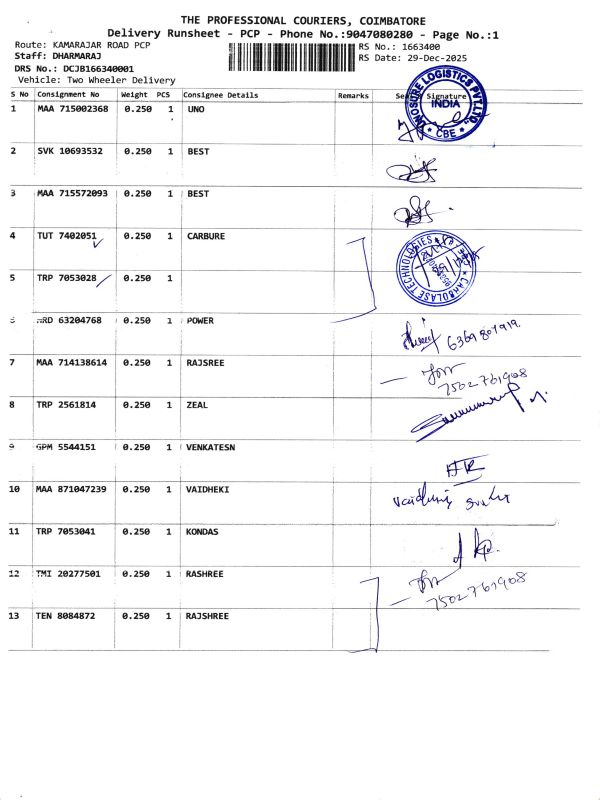 THE PROFESSIONAL COURIERS, COIMBATORE
Delivery Runsheet - PCP - Phone No.:9047080280 - Page No.:1
Route: KAMARAJAR ROAD PCP RS No.: 1663400
Staff: DHARMARAJ RS Date: 29-Dec-2025
DRS No.: DCJB166340001
Vehicle: Two Wheeler Delivery
S No Consignment No Weight PCS Consignee Details Remarks Signature
UNOSURE LOGISTICS PVT.LTD.
INDIA
* CBE *
1 MAA 715002368 0.250 1 UNO
2 SVK 10693532 0.250 1 BEST
3 MAA 715572093 0.250 1 BEST
4 TUT 7402051 0.250 1 CARBURE
CARBOLASE TECHNOLOGIES
5 TRP 7053028 0.250 1
6 HRD 63204768 0.250 1 POWER
6369807919.
7 MAA 714138614 0.250 1 RAJSREE
7502761908
8 TRP 2561814 0.250 1 ZEAL
9 GPM 5544151 0.250 1 VENKATESN
10 MAA 871047239 0.250 1 VAIDHEKI
11 TRP 7053041 0.250 1 KONDAS
12 TMI 20277501 0.250 1 RASHREE
7502761908
13 TEN 8084872 0.250 1 RAJSHREE